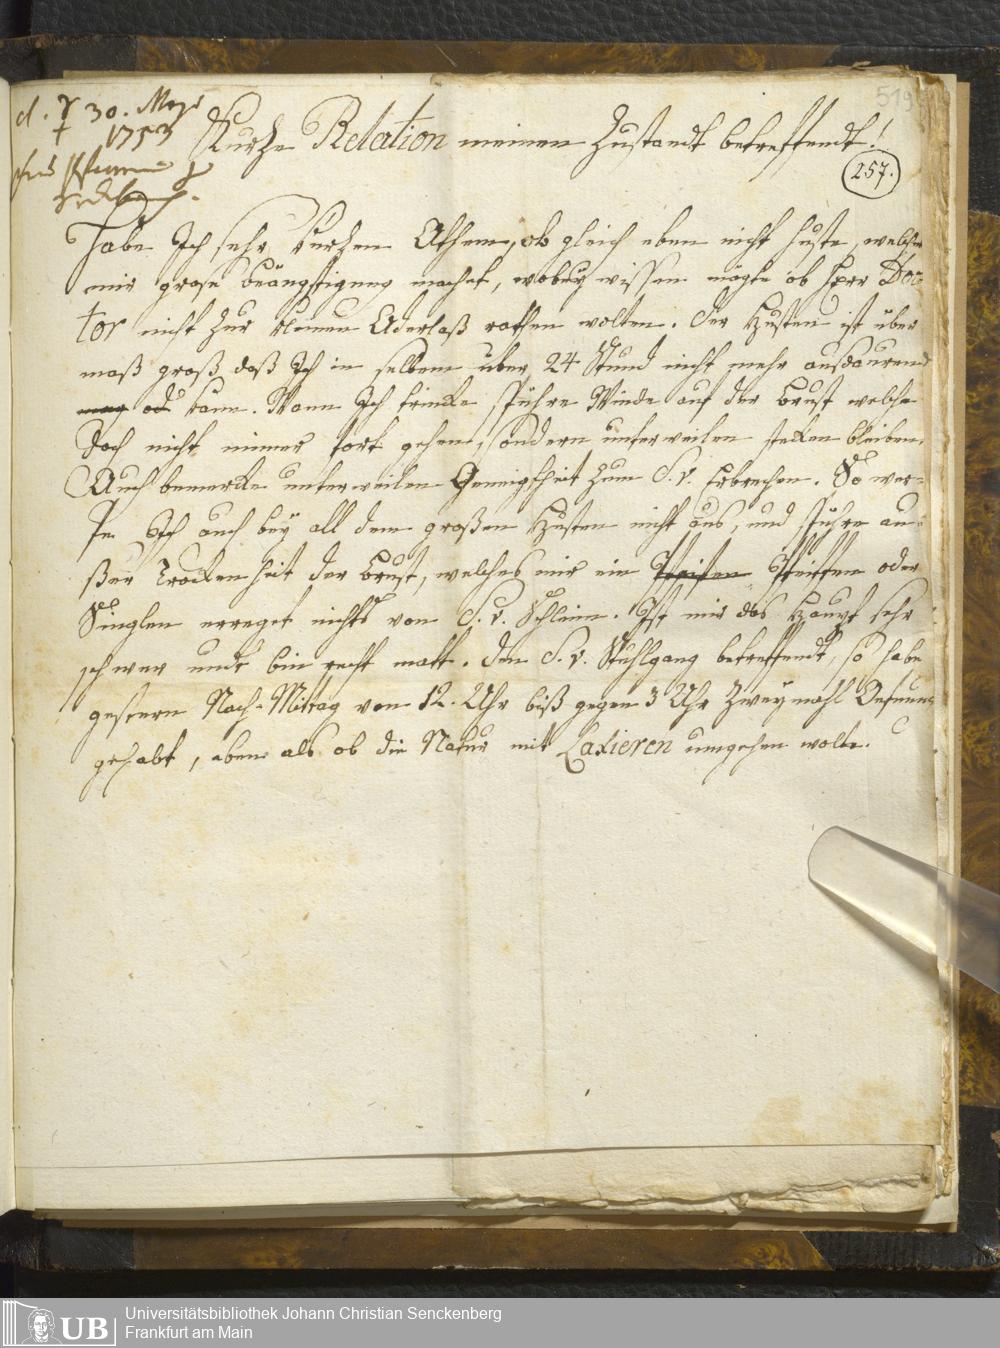 519
d. ☿ 30. May
† 1753
Kurze Relation meinen Zustandt betreffendt!
257.
Habe Ich sehr kurzen Athem, ob gleich eben nicht huste, welches
mir grose beängstigung machet, wobey wissen mögte ob Herr Doc-
tor nicht zur kleinen Aderlaß rathen wolten. Der Husten ist über
maß groß daß Ich in selbem über 24 Stund nicht mehr ausdauren
mag od kann. Wann Ich trincke spühre Winde auf der Brust welche
doch nicht immer fort gehen, sondern unterweilen stecken bleiben.
Auch bemercke unterweilen Geneigtheit zum S. v. Erbrechen. So wer-
fe Ich auch bey all dem großen Husten nicht aus, und spühre au-
ßer Trockenheit der Brust, welches mir ein Pfeiffen Pfeiffen oder
Singlen erreget nichts von S. v. Schleim. Ist mir das Haupt sehr
schwer undt bin recht matt. Den S. v. Stuhlgang betreffendt, so habe
gestern Nach-Mittag von 12. Uhr biß gegen 3 Uhr zweymahl Oefnung
gehabt, eben als ob die Natur mit Laxieren umgehen wolte.
UB
Universitätsbibliothek Johann Christian Senckenberg
Frankfurt am Main